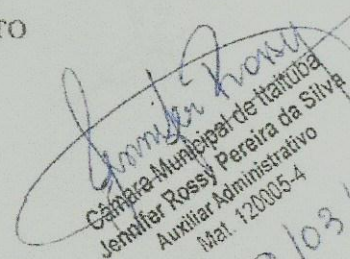 TO
Jennifer Rossy
Câmara Municipal de Itaituba
Jennifer Rossy Pereira da Silva
Auxiliar Administrativo
Mat. 120005-4
/03/